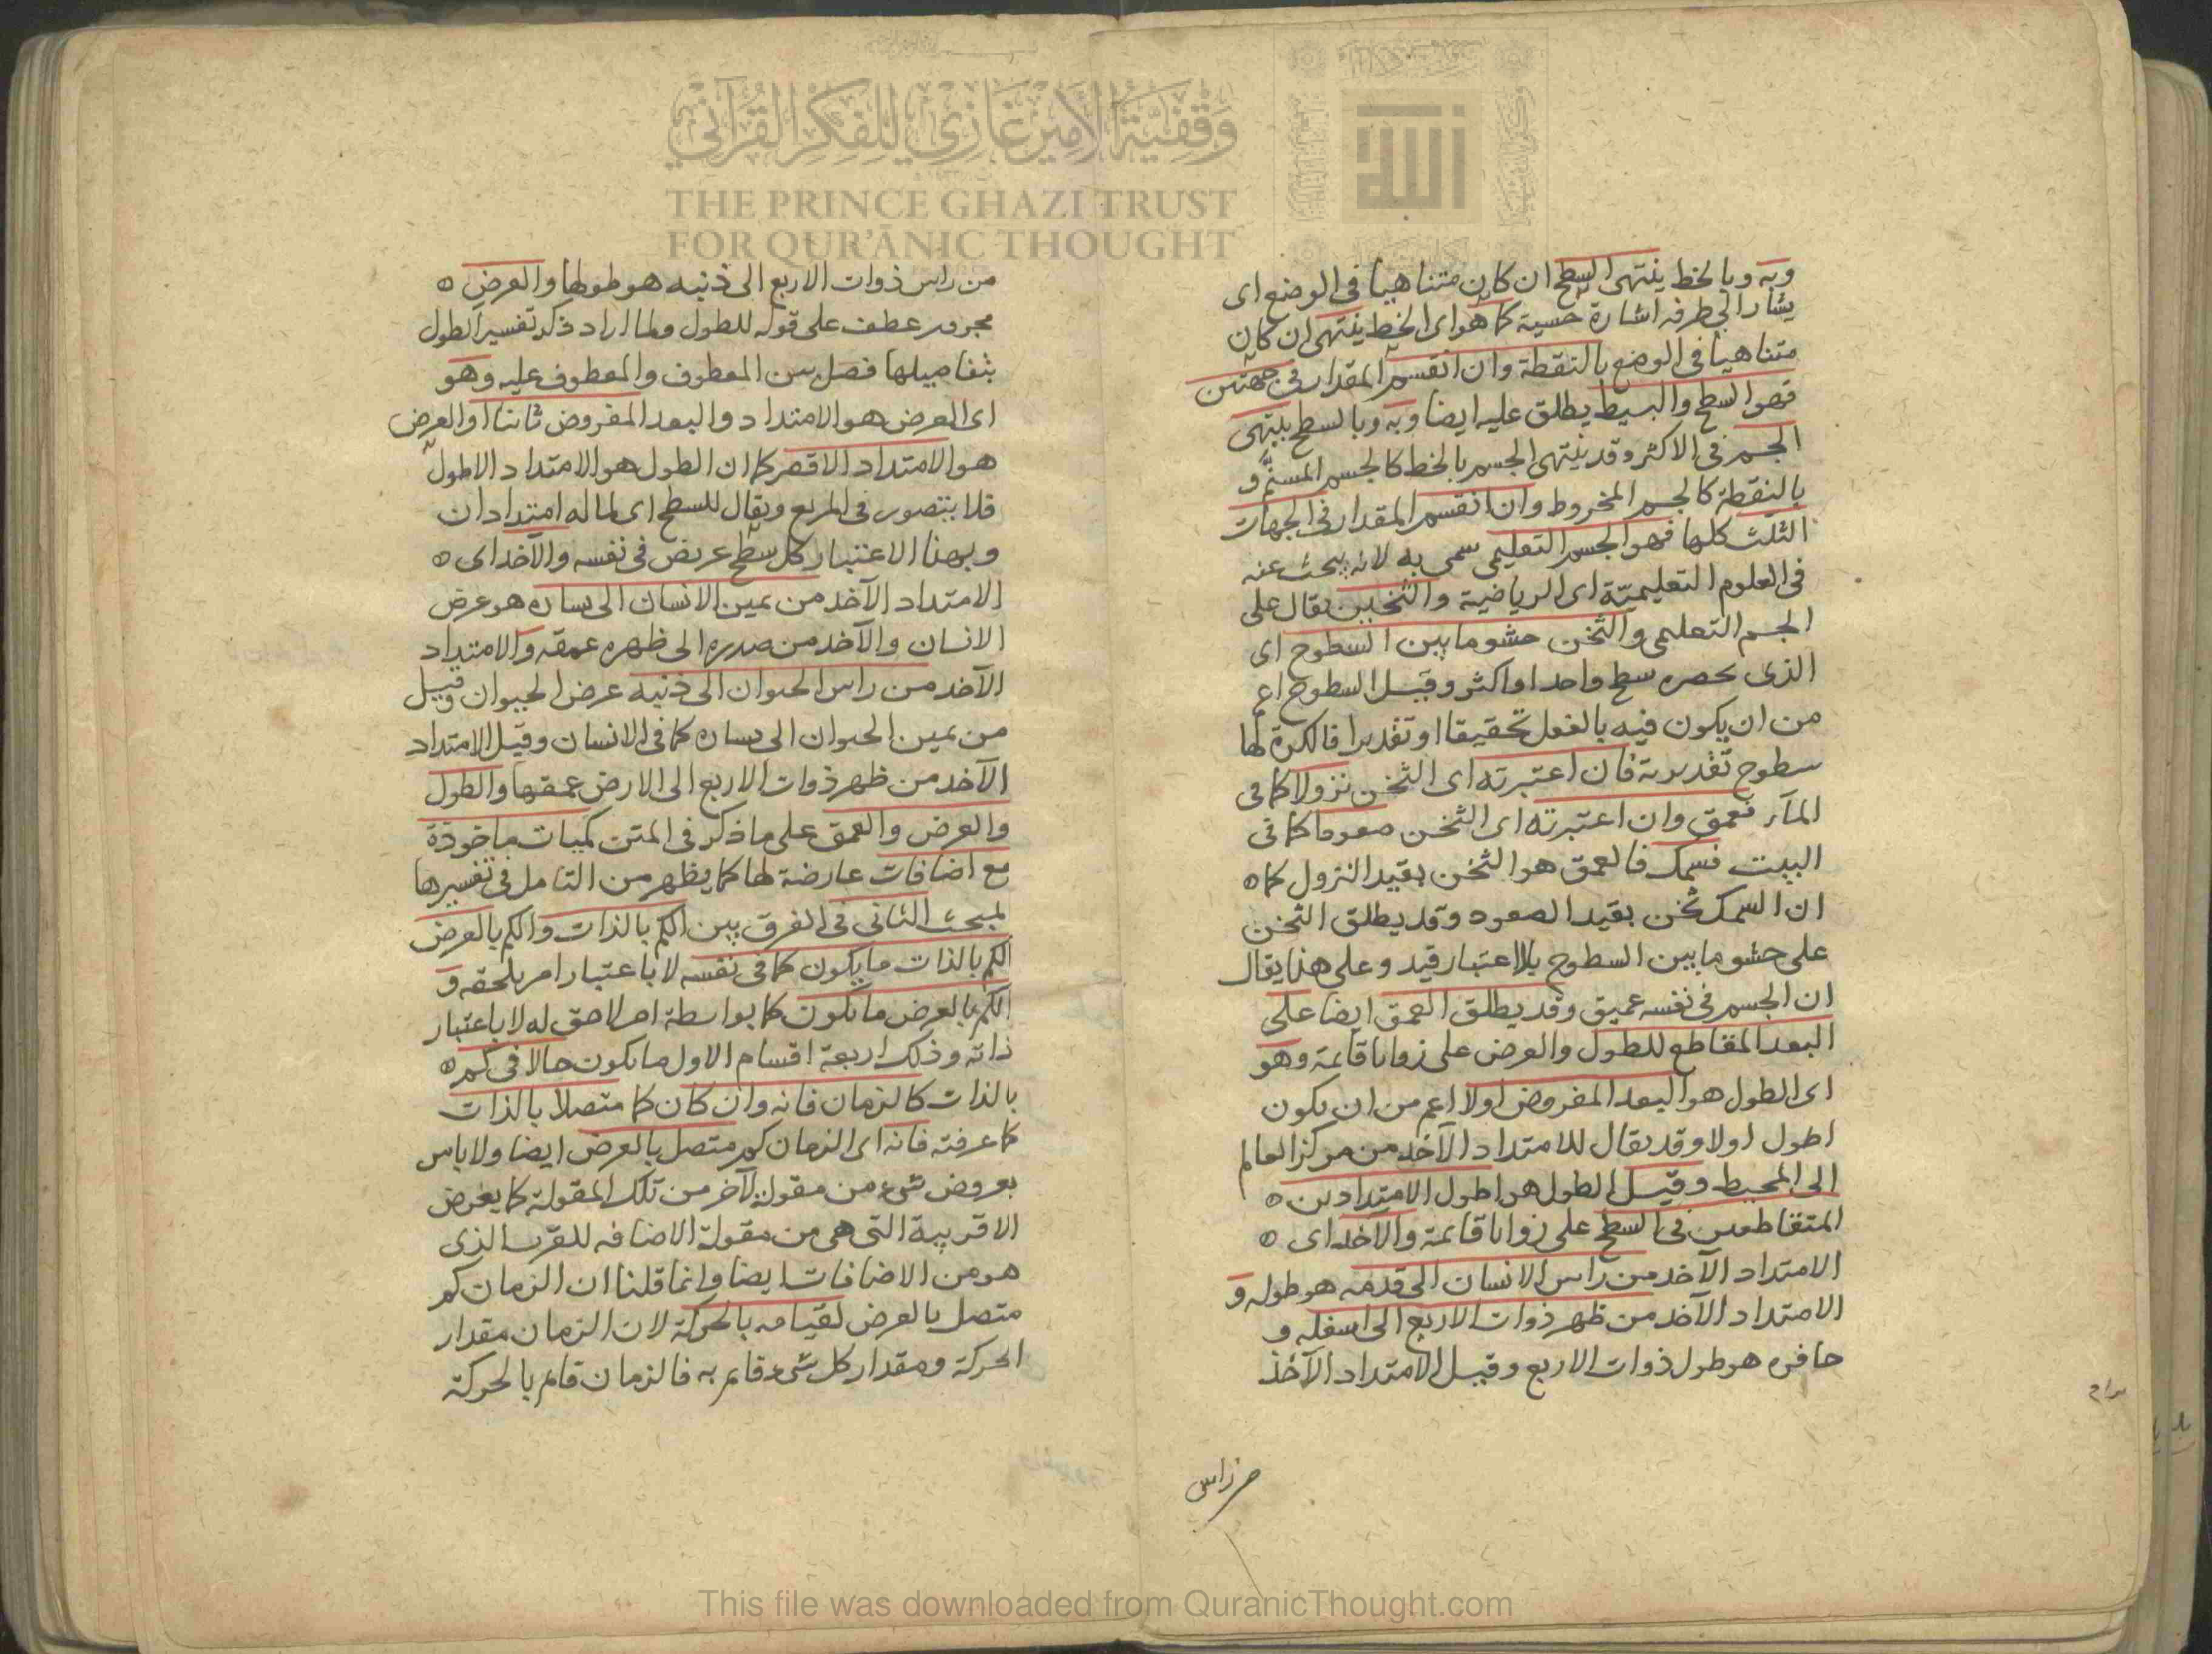 وبه وبالخط ينتهى السطح ان كان متناهيا فى الوضع اى
يشار الى طرفه اشارة حسية كما هو اى الخط ينتهى ان كان
متناهيا فى الوضع بالنقطة وان انقسم المقدار فى جهتين
فهو السطح والبسيط يطلق عليه ايضا وبه وبالسطح ينتهى
الجسم فى الاكثر وقد ينتهى الجسم بالخط كالجسم المسنم و
بالنقطة كالجسم المخروط وان انقسم المقدار فى الجهات
الثلث كلها فهو الجسم التعليمى سمى به لانه يبحث عنه
فى العلوم التعليمية اى الرياضية والثخين يقال على
الجسم التعليمى والثخن حشو ما بين السطوح اى
الذى يحصره سطح واحد او اكثر وقيل السطوح اعم
من ان يكون فيه بالفعل تحقيقا او تقديرا فالكرة لها
سطوح تقديرية فان اعتبرته اى الثخن نزولا كما فى
المآء فعمق وان اعتبرته اى الثخن صعودا كما فى
البيت فسمك فالعمق هو الثخن بقيد النزول كما
ان السمك ثخن بقيد الصعود وقد يطلق الثخن
على حشو ما بين السطوح بلا اعتبار قيد وعلى هذا يقال
ان الجسم فى نفسه عميق وقد يطلق العمق ايضا على
البعد المقاطع للطول والعرض على زوايا قايمة وهو
اى الطول هو البعد المفروض اولا اعم من ان يكون
اطول اولا وقد يقال للامتداد الآخذ من مركز العالم
الى المحيط وقيل الطول هو اطول الامتدادين
المتقاطعين فى السطح على زوايا قايمة والآخذ اى
الامتداد الآخذ من راس الانسان الى قدمه هو طوله و
الامتداد الآخذ من ظهر ذوات الاربع الى اسفله و
حافره هو طول ذوات الاربع وقيل الامتداد الآخذ
من راس
من راس ذوات الاربع الى ذنبه هو طولها والعرض
مجرور عطف على قوله للطول ولما اراد ذكر تفسير الطول
بتفاصيلها فصل بين المعطوف والمعطوف عليه وهو
اى العرض هو الامتداد والبعد المفروض ثانيا او العرض
هو الامتداد الاقصر كما ان الطول هو الامتداد الاطول
فلا يتصور فى المربع ويقال للسطح اى لما له امتدادان
وبهذا الاعتبار كل سطح عريض فى نفسه والآخذ اى
الامتداد الآخذ من يمين الانسان الى يساره هو عرض
الانسان والآخذ من صدره الى ظهره عمقه والامتداد
الآخذ من راس الحيوان الى ذنبه عرض الحيوان وقيل
من يمين الحيوان الى يساره كما فى الانسان وقيل الامتداد
الآخذ من ظهر ذوات الاربع الى الارض عمقها والطول
والعرض والعمق على ما ذكر فى المتن كميات ماخوذة
مع اضافات عارضة لها كما يظهر من التامل فى تفسيرها
لمبحث الثانى فى الفرق بين الكم بالذات والكم بالعرض
الكم بالذات ما يكون كما فى نفسه لا باعتبار امر يلحقه و
الكم بالعرض ما يكون كما بواسطة امر لاحق له لا باعتبار
ذاته وذلك اربعة اقسام الاول ما يكون حالا فى كم
بالذات كالزمان فانه وان كان كما متصلا بالذات
كما عرفته فانه اى الزمان كم متصل بالعرض ايضا ولا باس
بعروض شىء من مقولة لآخر من تلك المقولة كما يعرض
الاقربية التى هى من مقولة الاضافه للقرب الذى
هو من الاضافات ايضا وانما قلنا ان الزمان كم
متصل بالعرض لقيامه بالحركة لان الزمان مقدار
الحركة ومقدار كل شىء قايم به فالزمان قايم بالحركة
وقفية الأمير غازي للفكر القرآني
THE PRINCE GHAZI TRUST
FOR QUR'ĀNIC THOUGHT
الله
This file was downloaded from QuranicThought.com